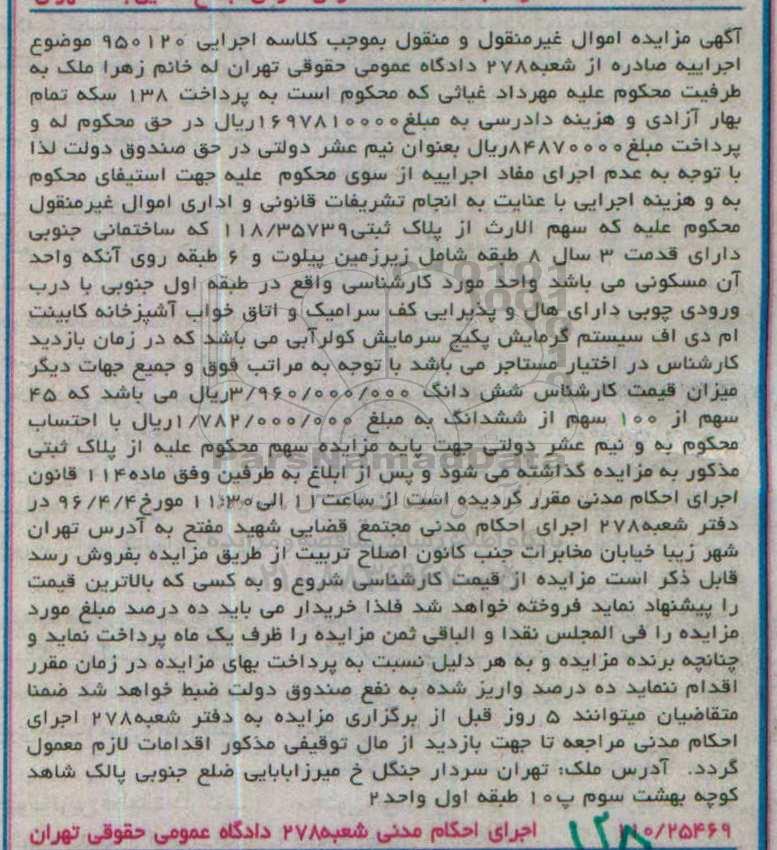 آگهی مزایده اموال غیرمنقول و منقول بموجب کلاسه اجرایی ۹۵۰۱۲۰ موضوع
اجراییه صادره از شعبه۲۷۸ دادگاه عمومی حقوقی تهران له خانم زهرا ملک به
طرفیت محکوم علیه مهرداد غیاثی که محکوم است به پرداخت ۱۳۸ سکه تمام
بهار آزادی و هزینه دادرسی به مبلغ۱۶۹۷۸۱۰۰۰۰ریال در حق محکوم له و
پرداخت مبلغ۸۴۸۷۰۰۰۰ریال بعنوان نیم عشر دولتی در حق صندوق دولت لذا
با توجه به عدم اجرای مفاد اجراییه از سوی محکوم علیه جهت استیفای محکوم
به و هزینه اجرایی با عنایت به انجام تشریفات قانونی و اداری اموال غیرمنقول
محکوم علیه که سهم الارث از پلاک ثبتی۱۱۸/۳۵۷۳۹ که ساختمانی جنوبی
دارای قدمت ۳ سال ۸ طبقه شامل زیرزمین پیلوت و ۶ طبقه روی آنکه واحد
آن مسکونی می باشد واحد مورد کارشناسی واقع در طبقه اول جنوبی با درب
ورودی چوبی دارای هال و پذیرایی کف سرامیک و اتاق خواب آشپزخانه کابینت
ام دی اف سیستم گرمایش پکیج سرمایش کولرآبی می باشد که در زمان بازدید
کارشناس در اختیار مستاجر می باشد با توجه به مراتب فوق و جمیع جهات دیگر
میزان قیمت کارشناس شش دانگ ۳/۹۶۰/۰۰۰/۰۰۰ریال می باشد که ۴۵
سهم از ۱۰۰ سهم از ششدانگ به مبلغ ۱/۷۸۲/۰۰۰/۰۰۰ریال با احتساب
محکوم به و نیم عشر دولتی جهت پایه مزایده سهم محکوم علیه از پلاک ثبتی
مذکور به مزایده گذاشته می شود و پس از ابلاغ به طرفین وفق ماده۱۱۴ قانون
اجرای احکام مدنی مقرر گردیده است از ساعت۱۱ الی۱۱:۳۰ مورخ۹۶/۴/۴ در
دفتر شعبه۲۷۸ اجرای احکام مدنی مجتمع قضایی شهید مفتح به آدرس تهران
شهر زیبا خیابان مخابرات جنب کانون اصلاح تربیت از طریق مزایده بفروش رسد
قابل ذکر است مزایده از قیمت کارشناسی شروع و به کسی که بالاترین قیمت
را پیشنهاد نماید فروخته خواهد شد فلذا خریدار می باید ده درصد مبلغ مورد
مزایده را فی المجلس نقدا و الباقی ثمن مزایده را ظرف یک ماه پرداخت نماید و
چنانچه برنده مزایده و به هر دلیل نسبت به پرداخت بهای مزایده در زمان مقرر
اقدام ننماید ده درصد واریز شده به نفع صندوق دولت ضبط خواهد شد ضمنا
متقاضیان میتوانند ۵ روز قبل از برگزاری مزایده به دفتر شعبه۲۷۸ اجرای
احکام مدنی مراجعه تا جهت بازدید از مال توقیفی مذکور اقدامات لازم معمول
گردد. آدرس ملک: تهران سردار جنگل خ میرزابابایی ضلع جنوبی پالک شاهد
کوچه بهشت سوم پ۱۰ طبقه اول واحد۲
۱۱۰/۲۵۴۶۹ اجرای احکام مدنی شعبه۲۷۸ دادگاه عمومی حقوقی تهران
۱۲۸
ParsNamadData